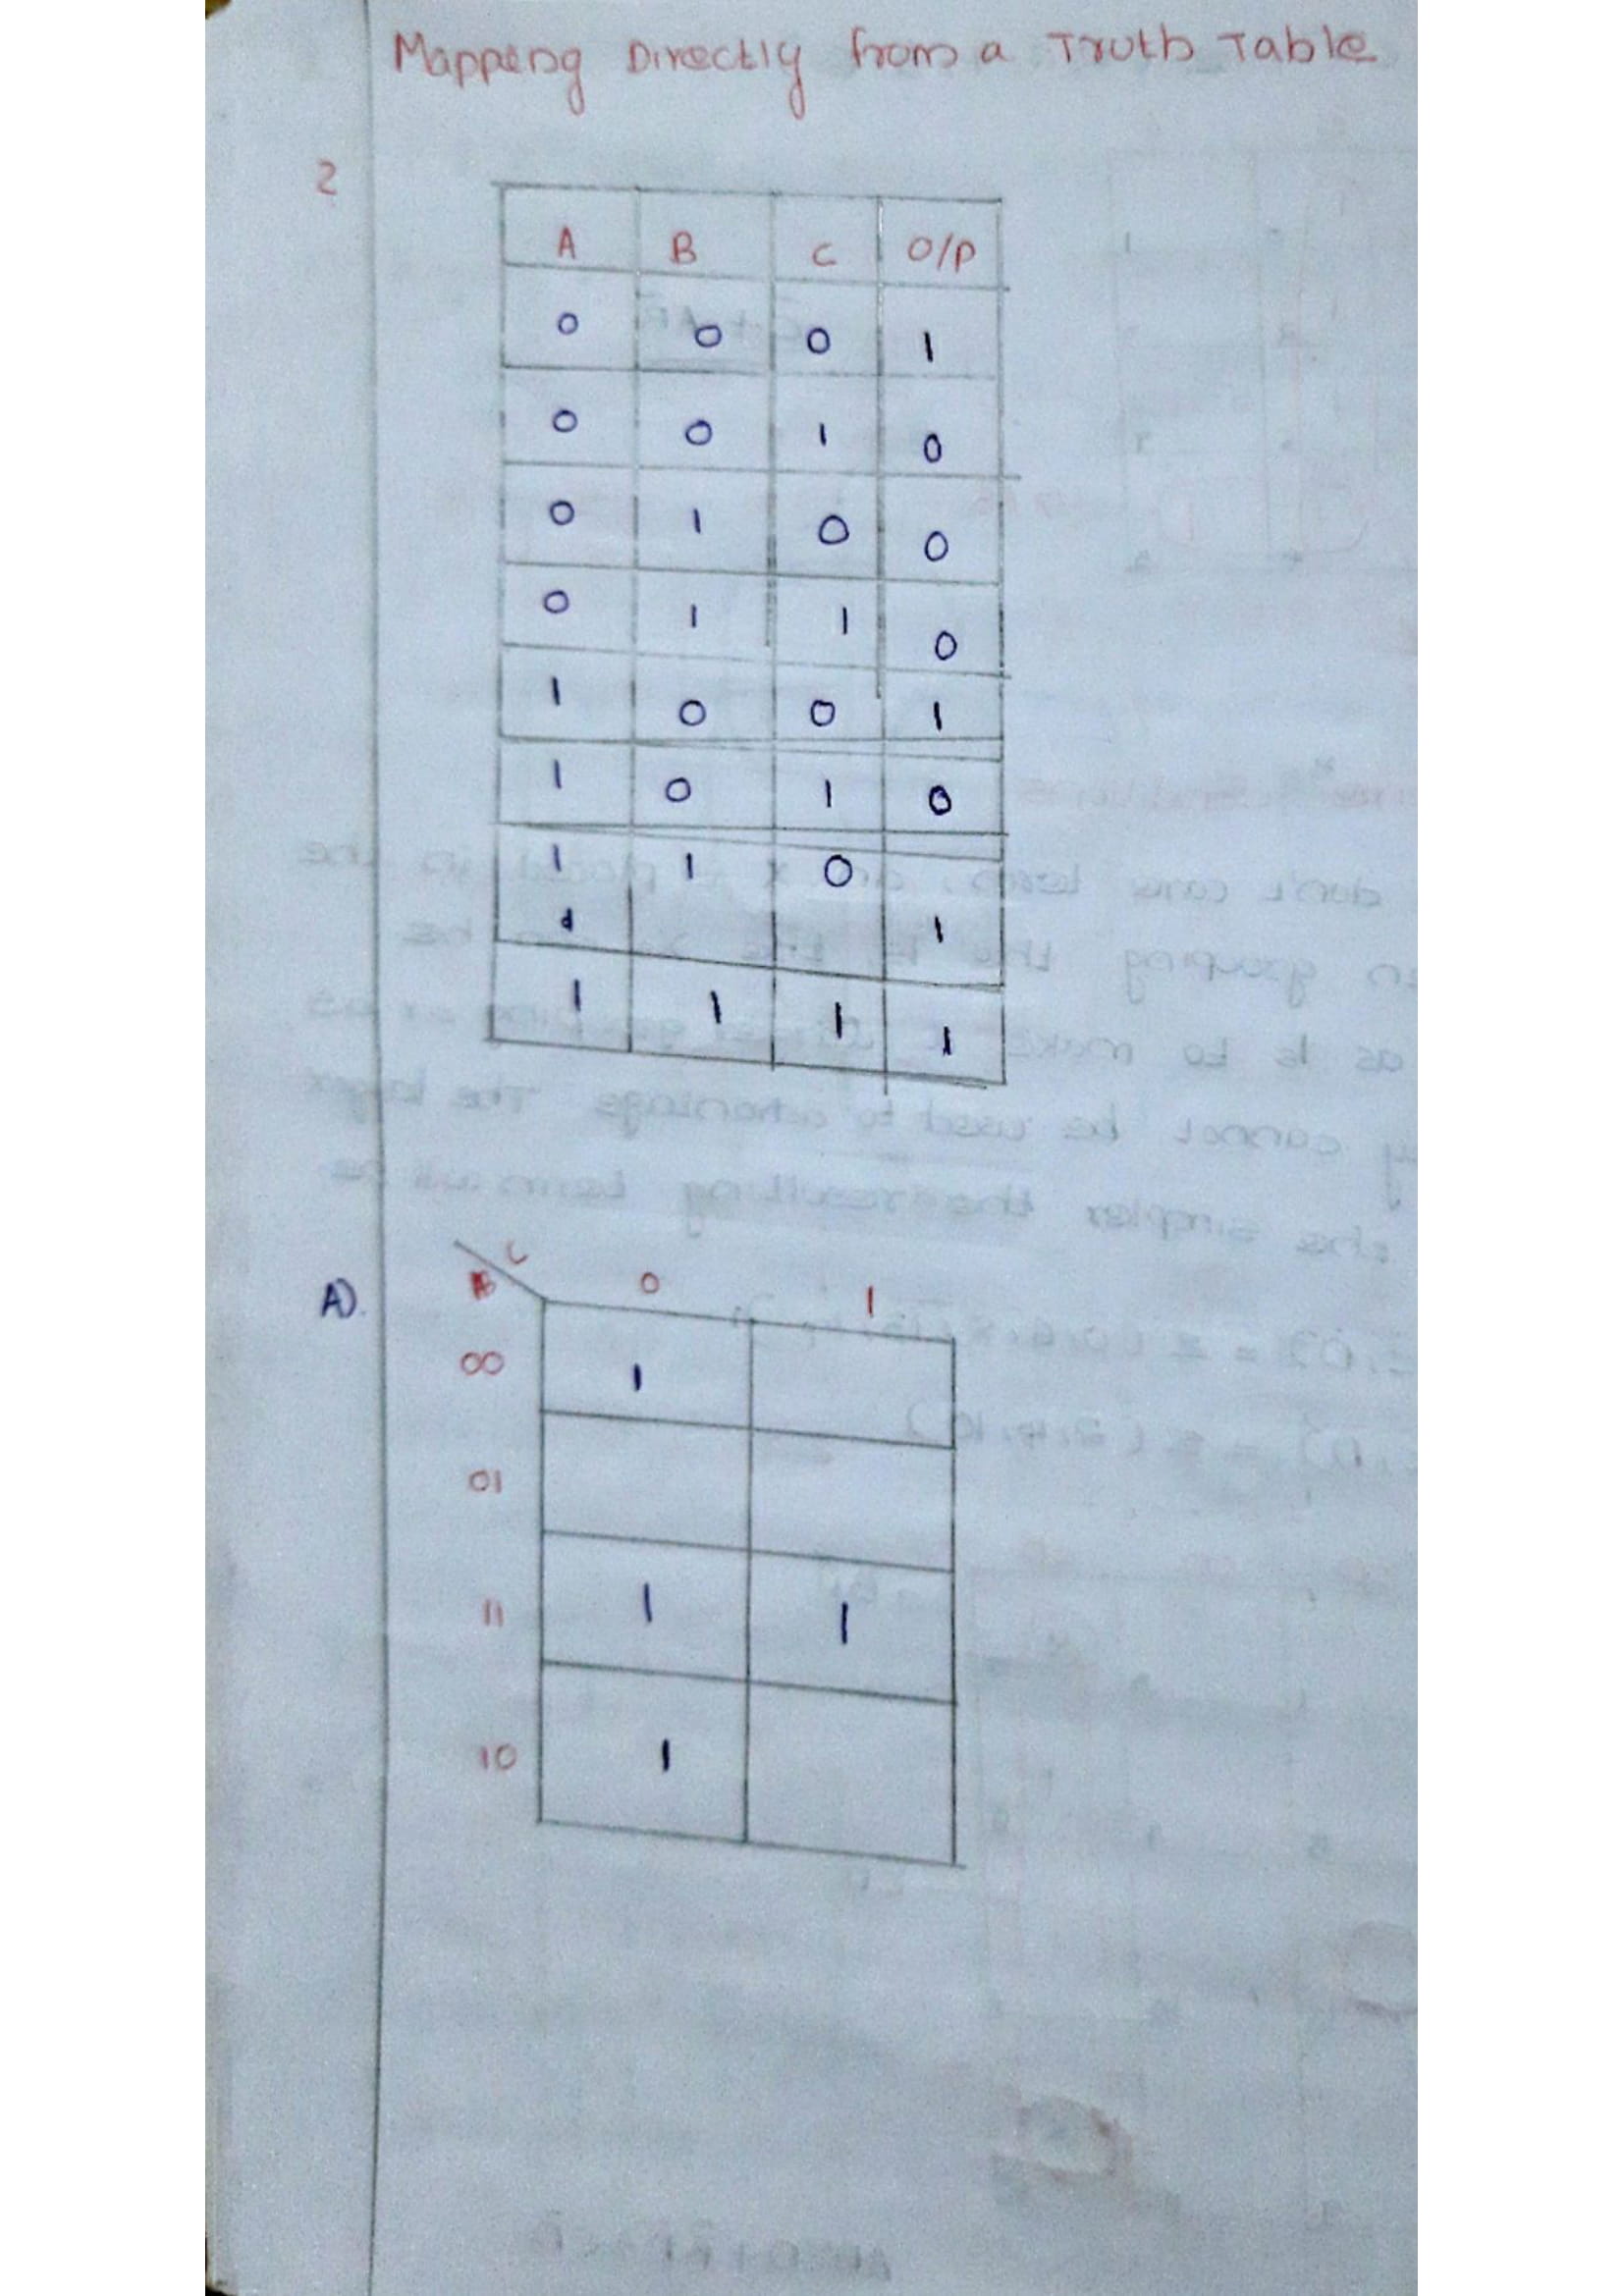 Mapping Directly from a Truth Table
2
A B C O/P
0 0 0 1
0 0 1 0
0 1 0 0
0 1 1 0
1 0 0 1
1 0 1 0
1 1 0 1
1 1 1 1
A).
C
AB 0 1
00 1
01
11 1 1
10 1